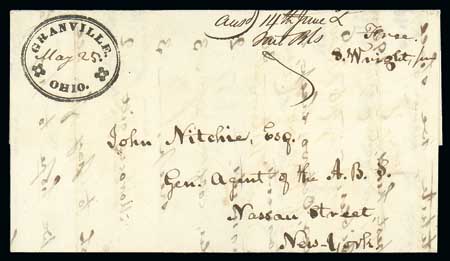 GRANVILLE.
May 25.
OHIO.
ansd 14th June
Free
S. Wright,
John Nitchie, Esq.
Gen. Agent of the A. B. S.
Nassau Street,
New-York